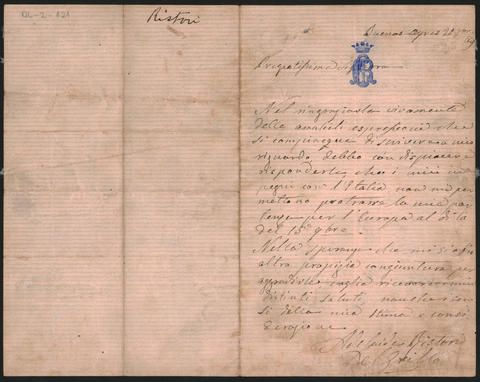 OL-2-121
Ristori
Buenos Ayres 20 7bre 69
Pregiatissima Signora
Nel ringraziarla vivamente
delle amabili espressioni che
si compiacque di scrivere a mio
riguardo, debbo con dispiacere
risponderle che i miei im
pegni con l'Italia non mi per
mettono protrarre la mia par
tenza per l'Europa al di là
del 15 8bre.
Nella speranza che mi si offra
altra propizia congiuntura per
aggradirle voglia ricevere i miei
distinti saluti, uniti ai sen
si della mia stima e consi
derazione
Adelaide Ristori
Del Grillo